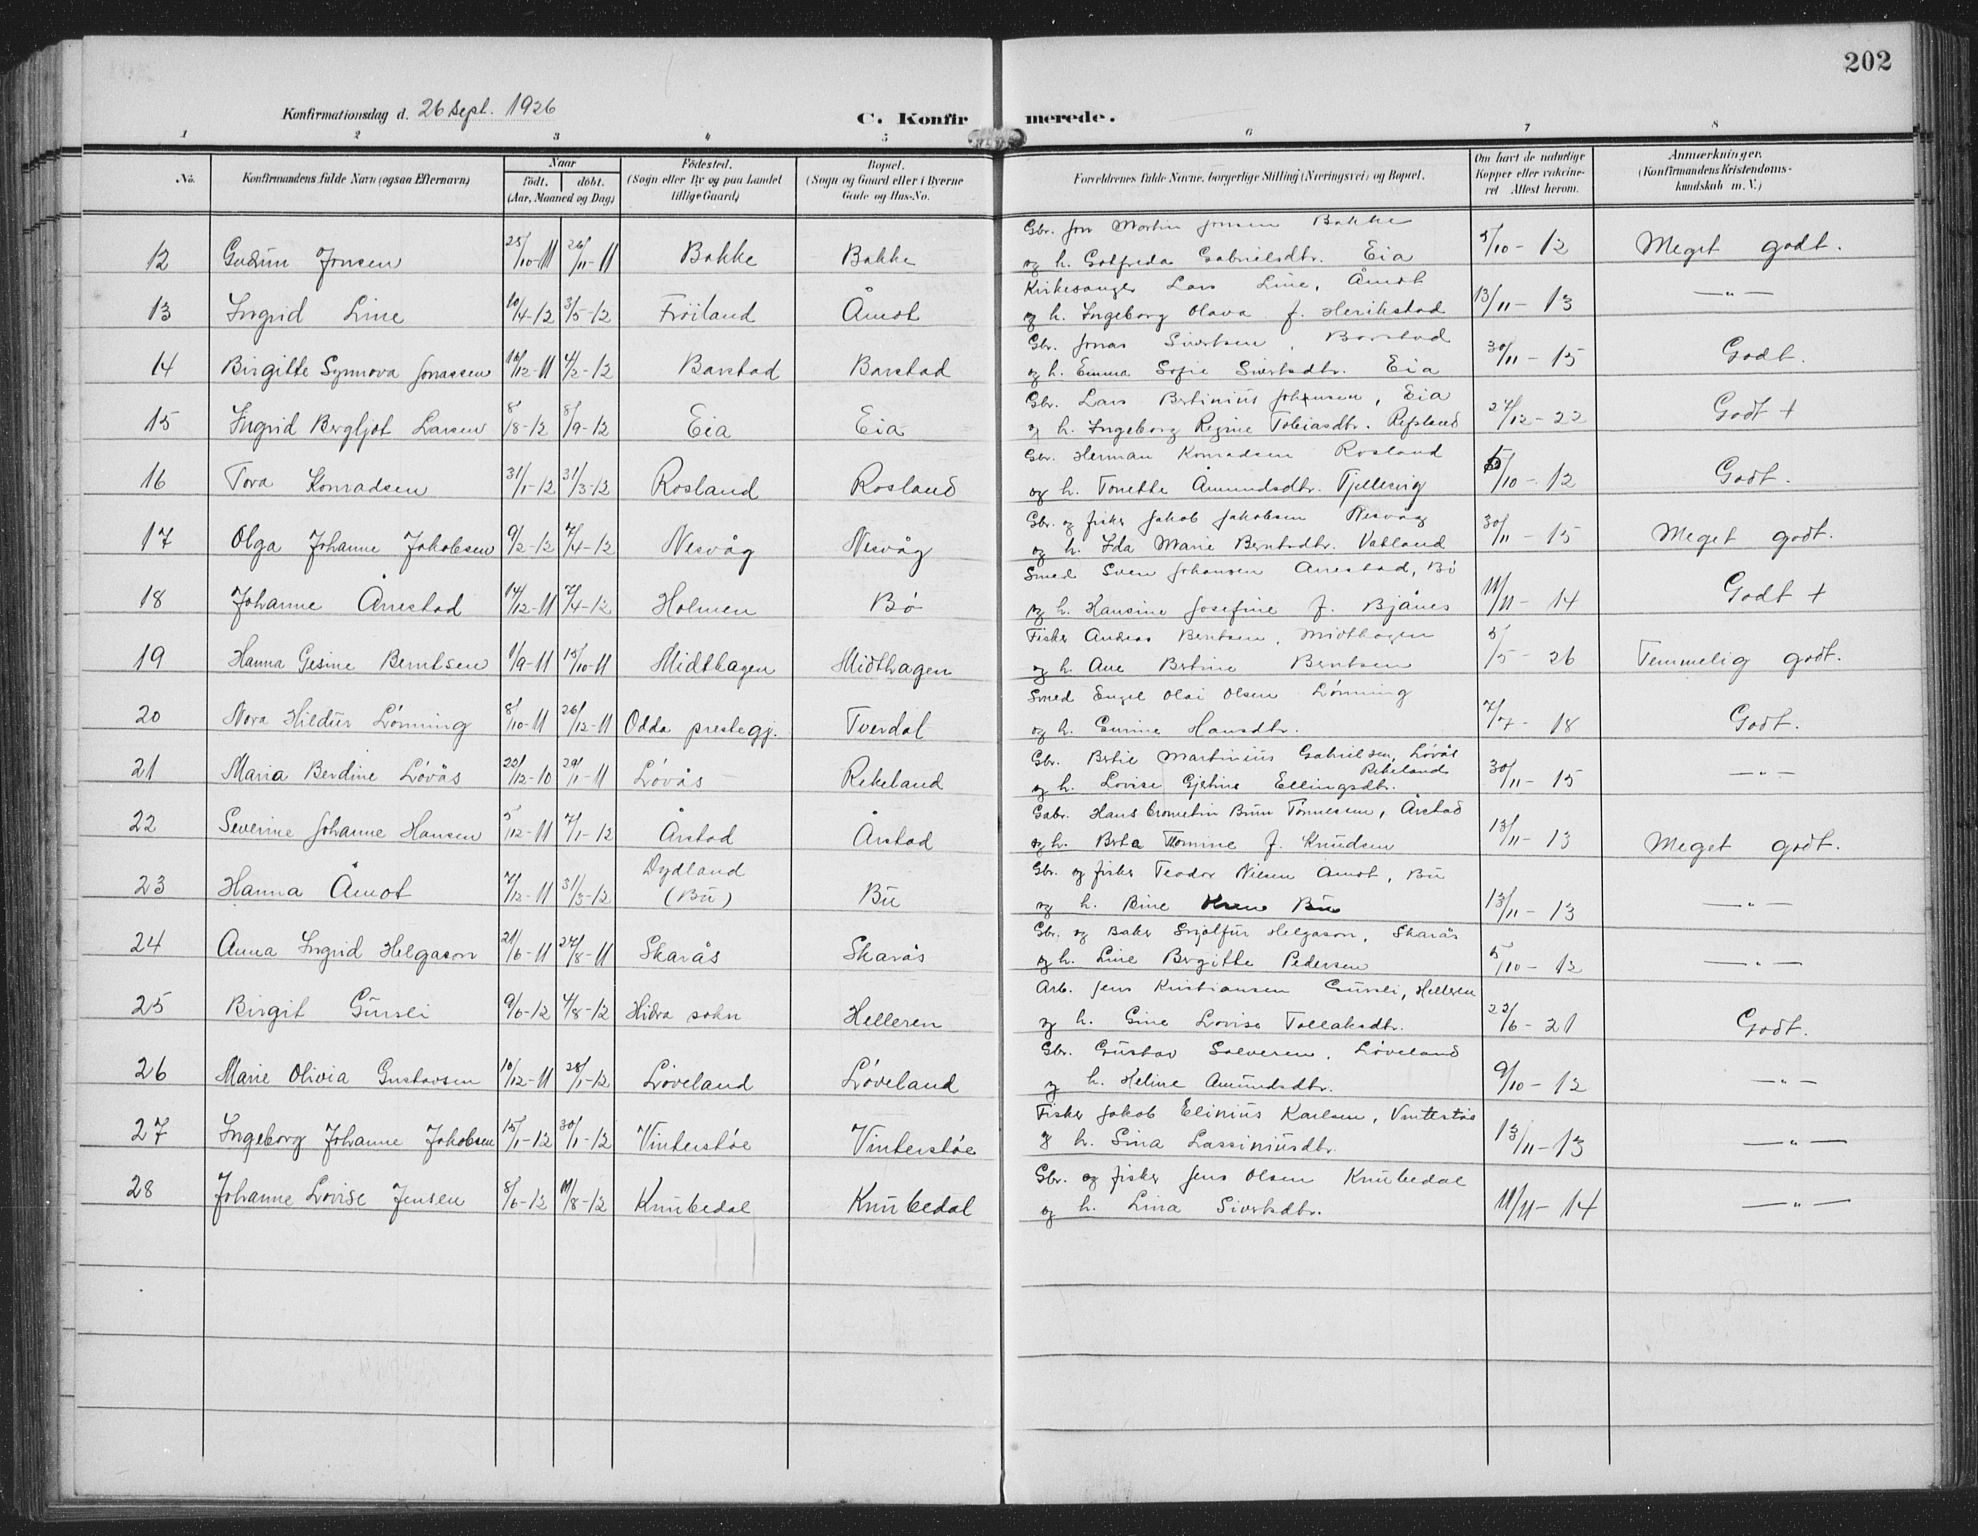 202
Konfirmationsdag d. 26 Sept. 1926
C. Konfirmerede.
1 2 3 4 5 6 7 8
No. Konfirmandens fulde Navn (ogsaa Efternavn) Naar født. døbt. (Aar, Maaned og Dag) Fødested. (Sogn eller By og paa Landet tillige Gaard) Bopæl. (Sogn og Gaard eller i Byerne Gade og Hus-No. Forældrenes fulde Navne, borgerlige Stilling (Næringsvei) og Bopæl. Om havt de naturlige Kopper eller vaccineret Attest herom. Anmærkninger. (Konfirmandens Kristendomskundskab m. V.)
Gbr. Jon Martin Jonsen Bakke
12 Gudrun Jonsen 25/10-11 26/11-11 Bakke Bakke og h. Gotfreda Gabrielsdtr. Eia 5/10-12 Meget godt.
Kirkesanger Lars Line, Åmot
13 Ingrid Line 10/4-12 3/5-12 Frøiland Åmot og h. Ingeborg Olava f. Herikstad 13/11-13 -"-
Gbr. Jonas Sivertsen, Barstad
14 Birgitte Synnova Jonassen 10/12-11 4/2-12 Barstad Barstad og h. Emma Sofie Sivertsdtr. Eia 30/11-15 Godt.
Gbr. Lars Bertinius Johansen, Eia
15 Ingrid Bergljot Larsen 8/8-12 8/9-12 Eia Eia og h. Ingeborg Regine Tobiasdtr. Refsland 27/12-22 Godt +
Gbr. Herman Konradsen Rosland
16 Tora Konradsen 31/1-12 31/3-12 Rosland Rosland og h. Tonette Åmundsdtr. Tjellesvig 5/10-12 Godt.
Gbr. og fisker Jakob Jakobsen Nesvåg
17 Olga Johanne Jakobsen 9/2-12 7/4-12 Nesvåg Nesvåg og h. Ida Marie Berntsdtr. Vatland 30/11-15 Meget godt.
Smed Sven Johansen Årrestad, Bø
18 Johanne Årrestad 14/12-11 7/4-12 Holmen Bø og h. Hansine Josefine f. Bjånes 11/11-14 Godt +
Fisker Andreas Berntsen, Midthagen
19 Hanna Gesine Berntsen 1/9-11 15/10-11 Midthagen Midthagen og h. Ane Bertine Berntsen 5/5-26 Temmelig godt.
Smed Engel Olai Olsen Lønning
20 Nora Hildur Lønning 8/10-11 26/12-11 Odda prestegj. Tverdal og h. Gurine Hansdtr. 7/7-18 Godt.
Gbr. Bertie Martinius Gabrielsen, Løvås
Rekeland
21 Maria Berdine Løvås 22/12-10 29/1-11 Løvås Rekeland og h. Lovise Gjertine Ellingsdtr. 30/11-15 -"-
Gabr. Hans Cronetin Brun Tønnesen, Årstad
22 Severine Johanne Hansen 5/12-11 7/1-12 Årstad Årstad og h. Berta Tomine f. Knudsen 13/11-13 Meget godt.
Gbr. og fisker Teodor Nilsen Åmot, Bu
23 Hanna Åmot 7/12-11 31/3-12 Dydland (Bu) Bu og h. Bine Bu 13/11-13 -"-
Gbr. og Baker Snjolfur Helgason, Skarås
24 Anna Ingrid Helgason 21/6-11 27/8-11 Skarås Skarås og h. Line Bergitte Pedersen 5/10-12 -"-
Arb. Jens Kristiansen Gursli, Helleren
25 Birgit Gursli 9/6-12 4/8-12 Hidra sokn Helleren og h. Gine Lovise Tollaksdtr. 22/6-21 Godt.
Gbr. Gustav Salvesen, Løveland
26 Marie Olivia Gustavsen 10/12-11 28/1-12 Løveland Løveland og h. Heline Amundsdtr. 9/10-12 -"-
Fisker Jakob Elinius Karlsen, Vinterstøe
27 Ingeborg Johanne Jakobsen 15/1-12 30/1-12 Vinterstøe Vinterstøe og h. Sina Lassiniusdtr. 13/11-13 -"-
Gbr. og fisker Jens Olsen Knubedal
28 Johanne Lovise Jensen 8/6-12 11/8-12 Knubedal Knubedal og h. Lina Sivertsdtr. 11/11-14 -"-